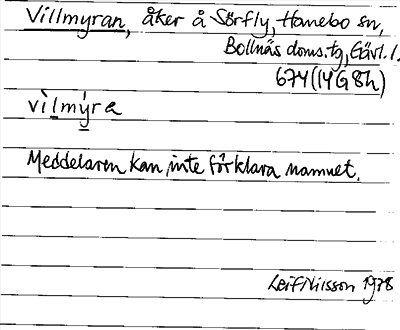 Villmyran, åker å Sörfly, Hanebo sn,
Bollnäs doms.tg, Gävl. l.
674 (14G8h)
vìlmýra
Meddelaren kan inte förklara namnet.
Leif Nilsson 1978